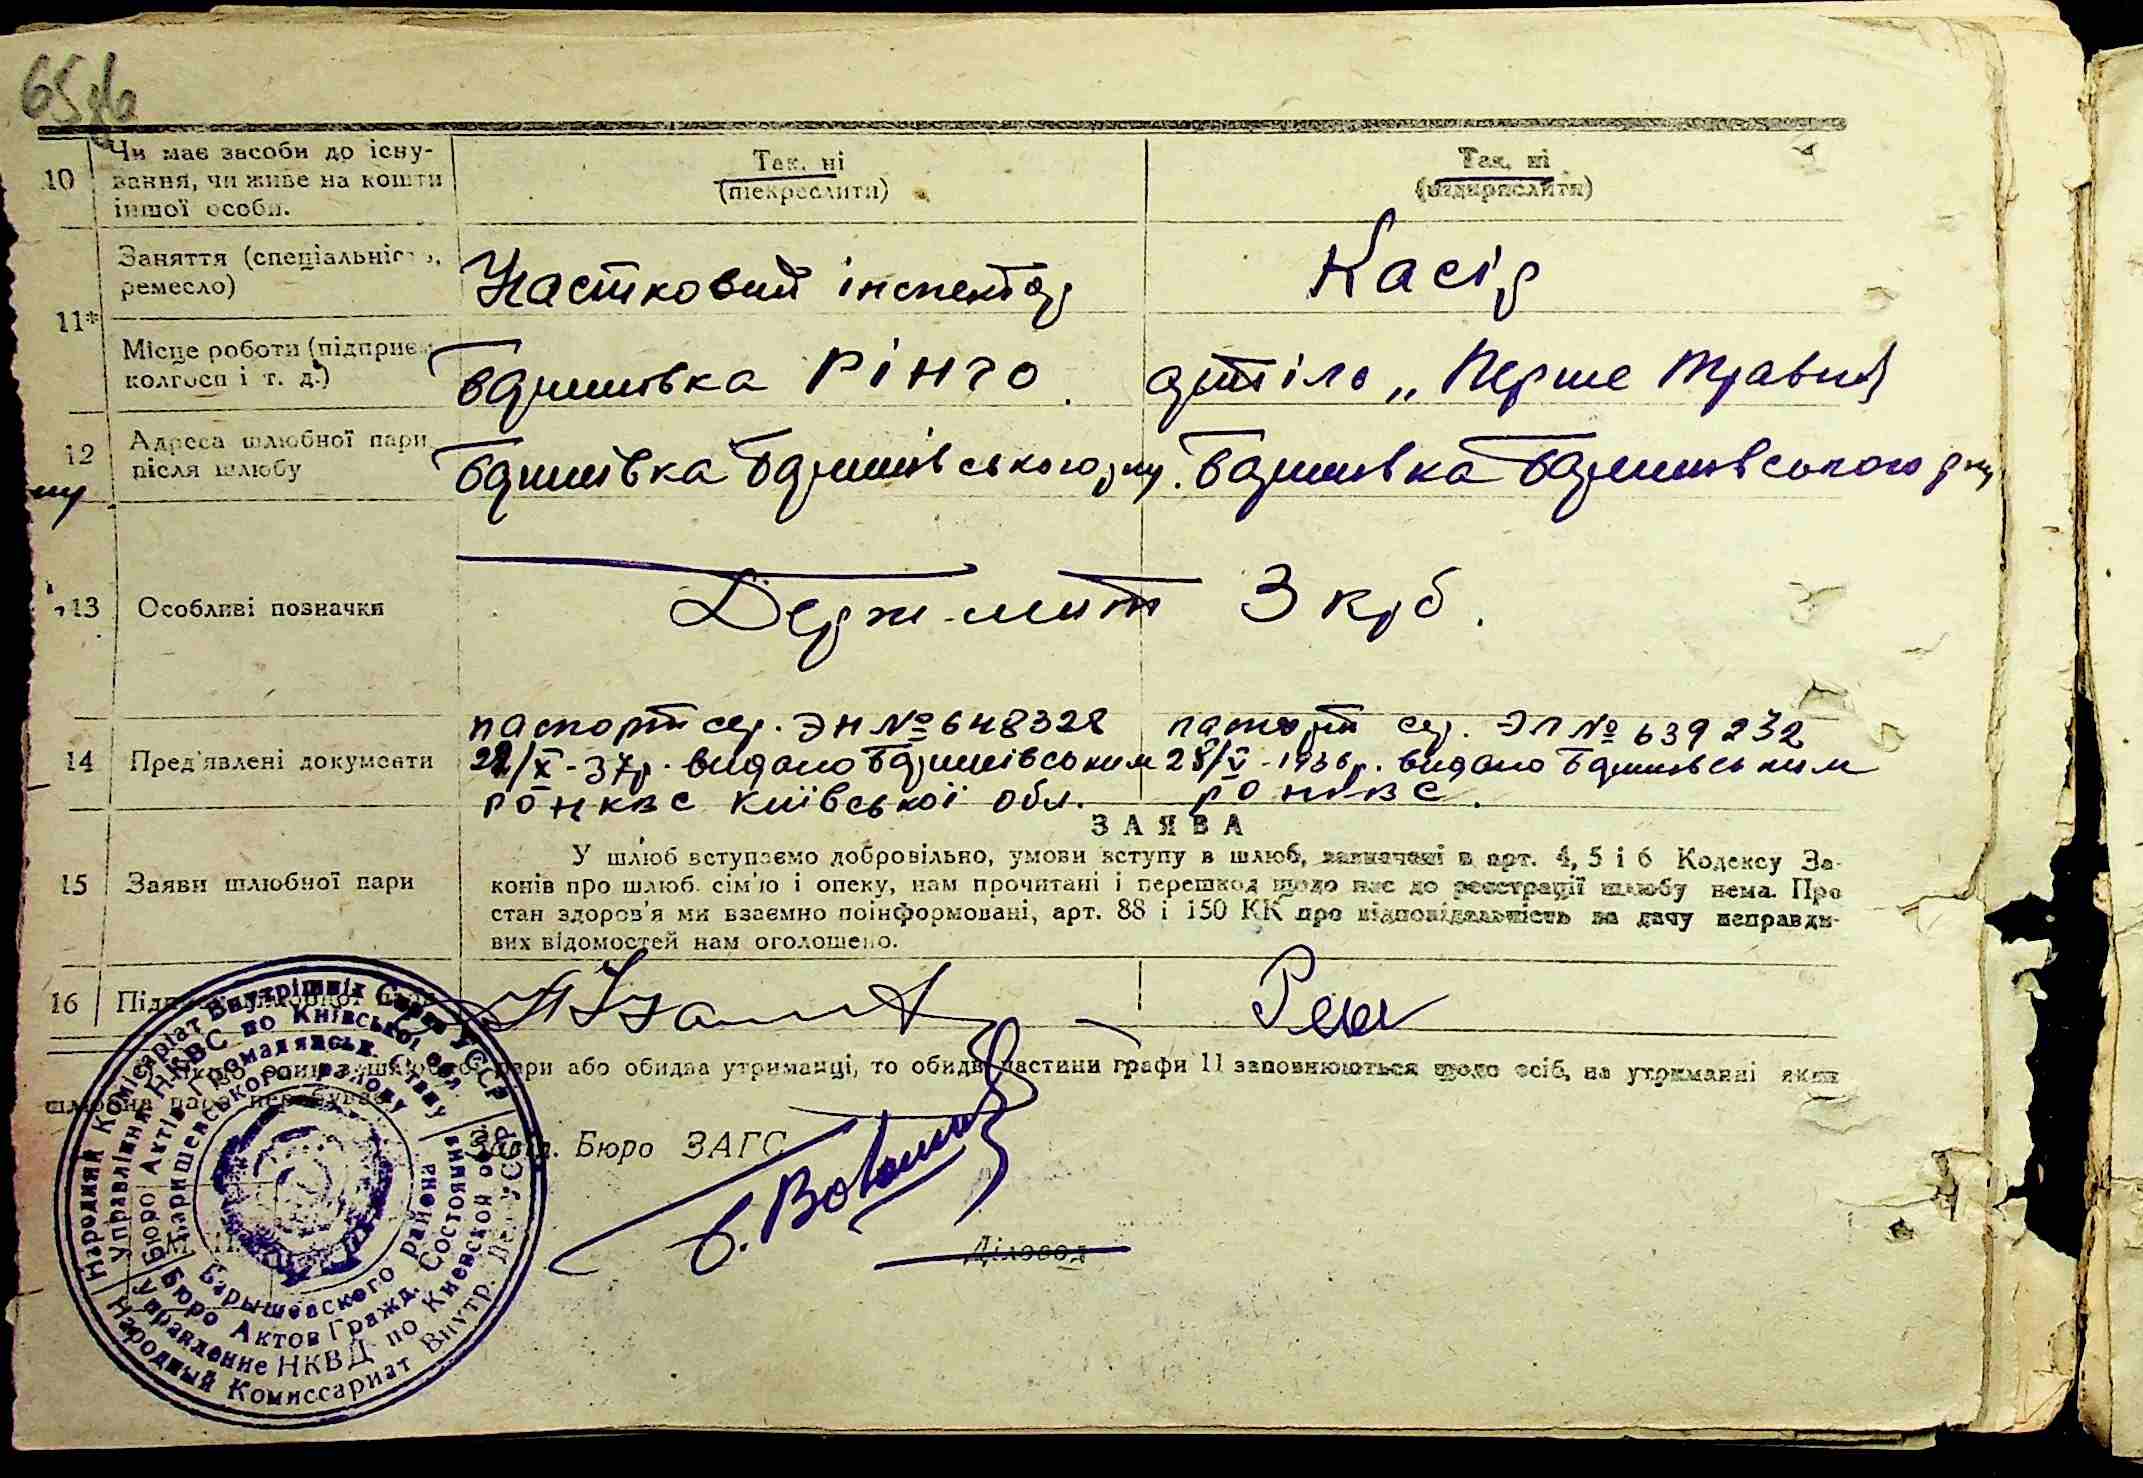 10 Чи має засоби до існу-
вання, чи живе на кошти
іншої особи.
Так, ні
(підкреслити)
Так, ні
(підкреслити)
11* Заняття (спеціальність,
ремесло)
Участковий інспектор
Касір
Місце роботи (підприєм.
колгосп і т. д.)
Баришівка РІНГО
артіль „Перше травня
12 Адреса шлюбної пари
після шлюбу
Баришівка Баришівського р-ну.
Баришівка Баришівського р-ну
13 Особливі позначки
Держ-мит 3 крб.
14 Пред'явлені документи
паспорт сер. ЭН № 648328
/X-37р. видано Баришівським
РОНКВС Київської обл.
паспорт сер. ЭП № 639232
28/V-1936р. видано Баришівським
РОНКВС.
15 Заяви шлюбної пари
ЗАЯВА
У шлюб вступаємо добровільно, умови вступу в шлюб, зазначені в арт. 4, 5 і 6 Кодексу За-
конів про шлюб. сім'ю і опеку, нам прочитані і перешкод щодо нас до реєстрації шлюбу нема. Про
стан здоров'я ми взаємно поінформовані, арт. 88 і 150 КК про відповідальність за дачу неправди-
вих відомостей нам оголошено.
16
пари або обидва утриманці, то обидві частини графи 11 заповнюються щодо осіб, на утриманні яких
шлюбна пара перебуває
Завід. Бюро ЗАГС
Діловод
Народний Комісаріат Внутрішніх Справ УССР
Управління НКВС по Київській обл.
Бюро Актів Громадянськ. Стану
Баришевського району
Барышевского района
Бюро Актов Гражд. Состояния
Управление НКВД по Киевской обл.
Народный Комиссариат Внутр. Дел УССР